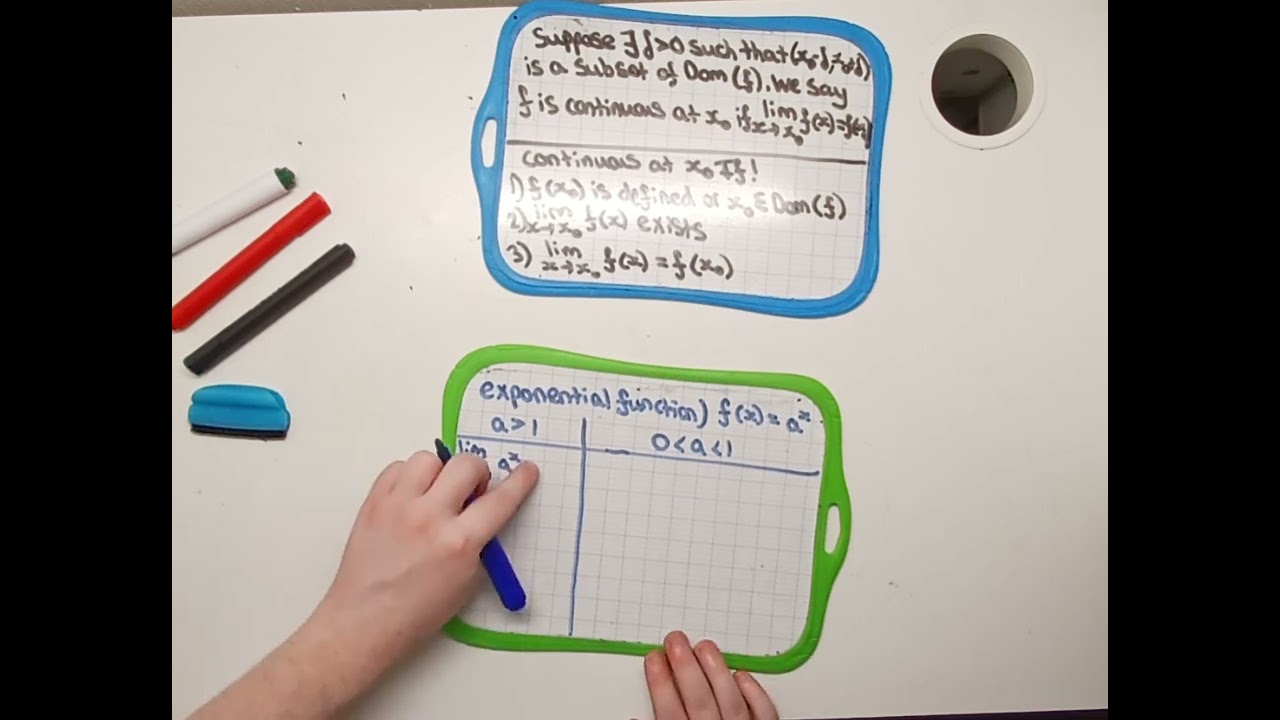 Suppose ∃ δ>0 such that (x₀-δ, x₀+δ)
is a subset of Dom(f). We say
f is continuous at x₀ if lim x→x₀ f(x)=f(x₀)
continuous at x₀ If!
1) f(x₀) is defined or x₀ ∈ Dom(f)
2) lim x→x₀ f(x) exists
3) lim x→x₀ f(x) = f(x₀)
exponential function) f(x) = aˣ
a>1
0<a<1
lim aˣ